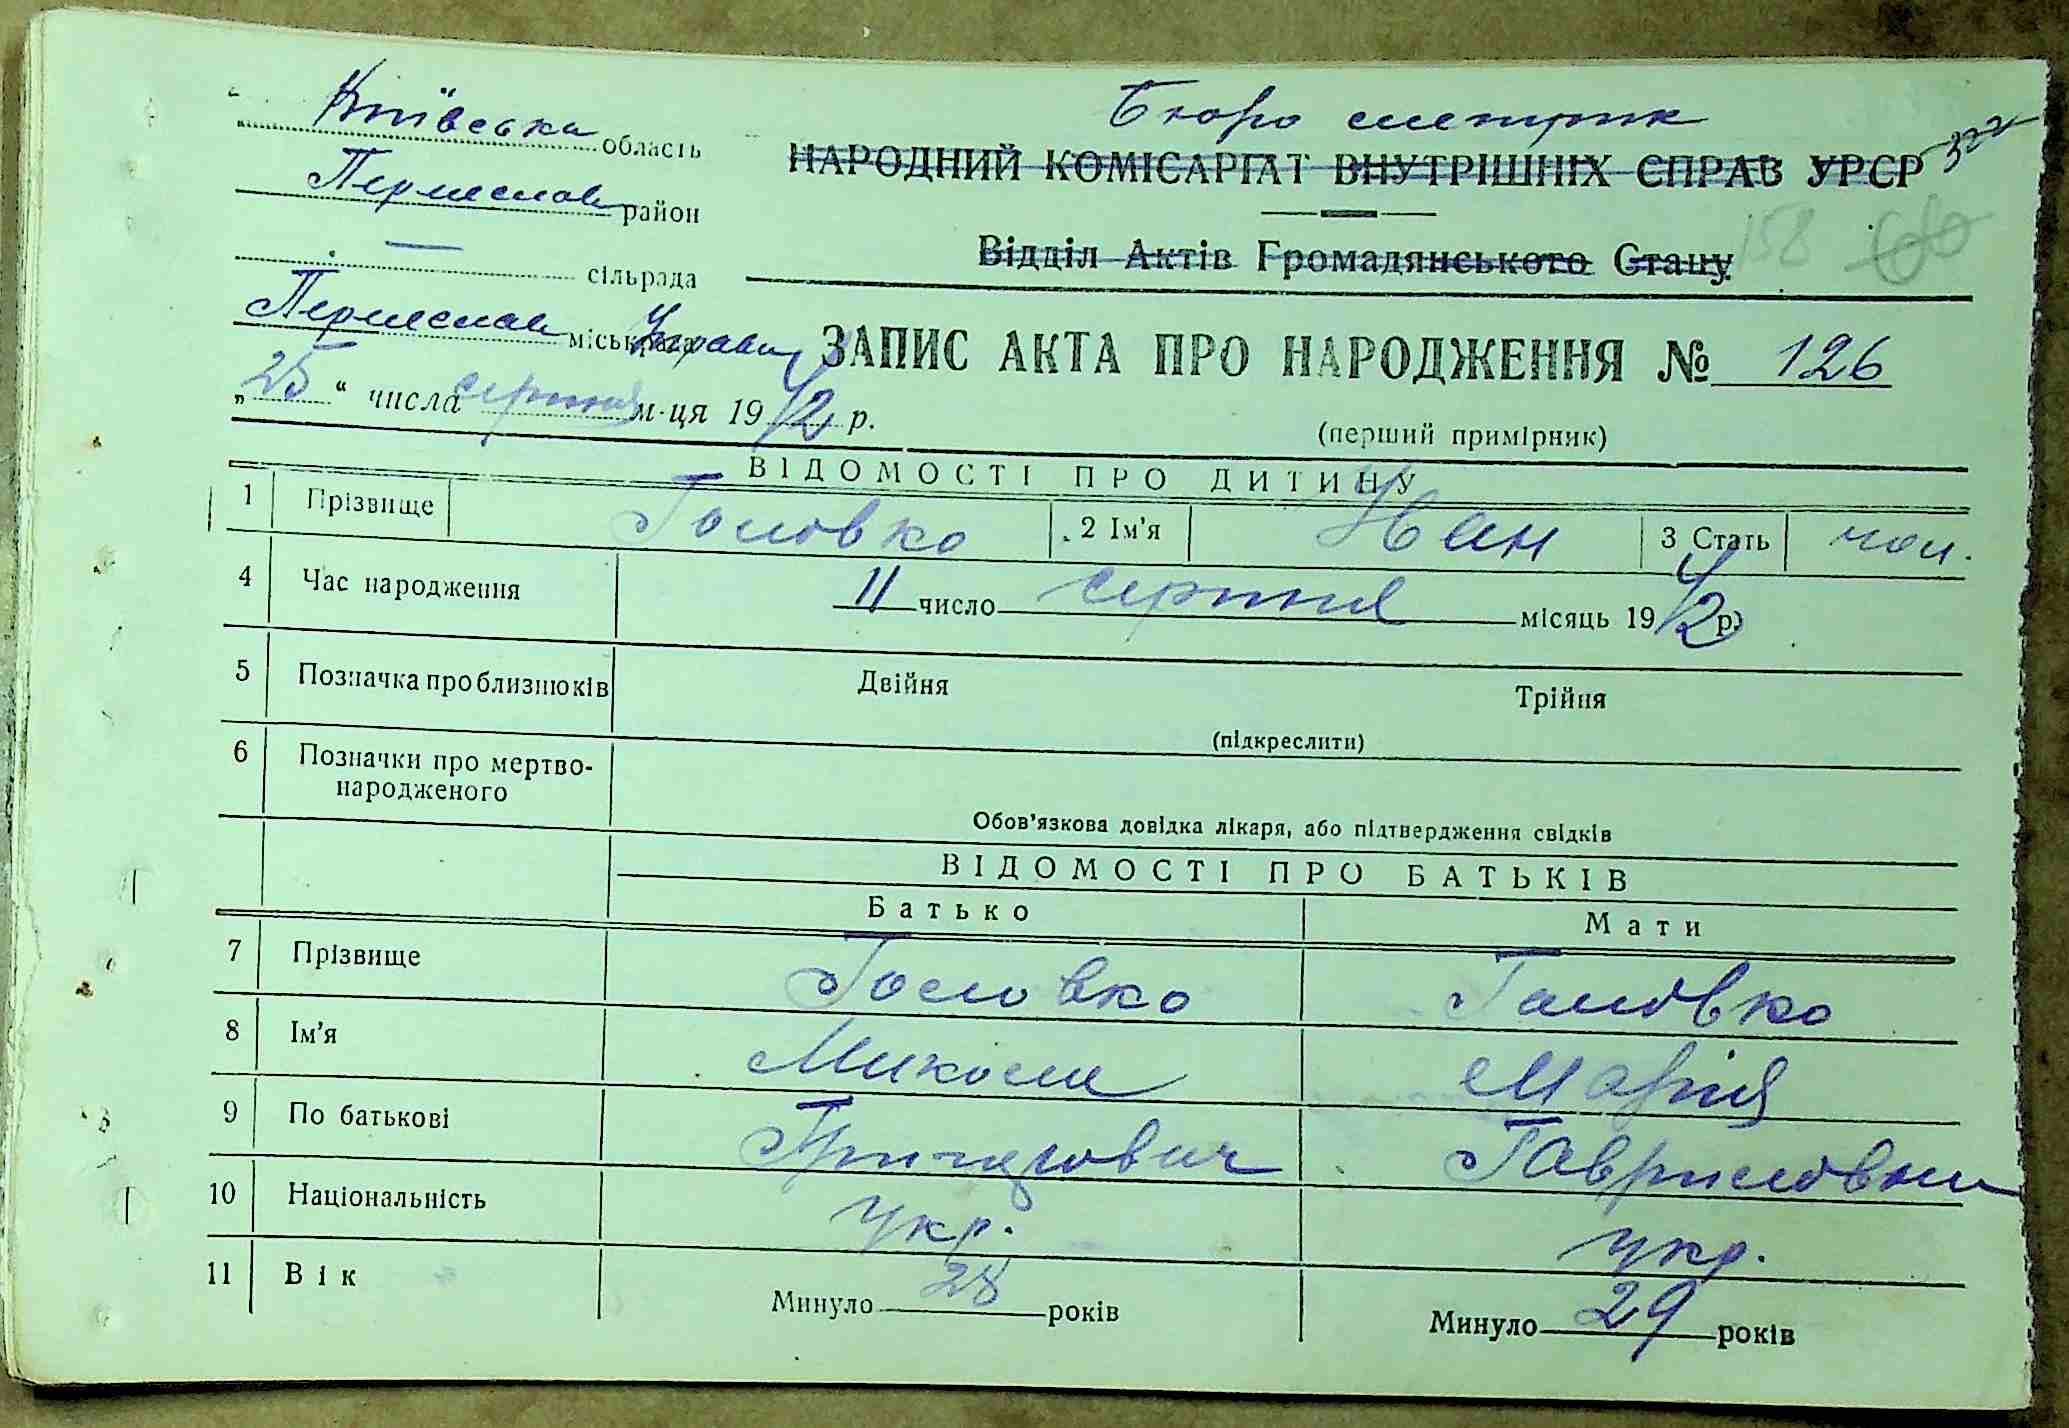 Київська область
Бюро метрик
НАРОДНИЙ КОМІСАРІАТ ВНУТРІШНІХ СПРАВ УРСР
Переяслав район
158
— сільрада
Відділ Актів Громадянського Стану
Переяслав міськрада Управа
ЗАПИС АКТА ПРО НАРОДЖЕННЯ № 126
„25“ числа серпня м-ця 1942 р.
(перший примірник)
ВІДОМОСТІ ПРО ДИТИНУ
1 Прізвище Головко 2 Ім'я Іван 3 Стать чол.
4 Час народження 11 число серпня місяць 1942 р.
5 Позначка про близнюків Двійня Трійня
(підкреслити)
6 Позначки про мертво-
народженого
Обов'язкова довідка лікаря, або підтвердження свідків
ВІДОМОСТІ ПРО БАТЬКІВ
Батько Мати
7 Прізвище Головко Головко
8 Ім'я Микола Марія
9 По батькові Григорович Гавриловна
10 Національність укр. укр.
11 Вік Минуло 28 років Минуло 29 років